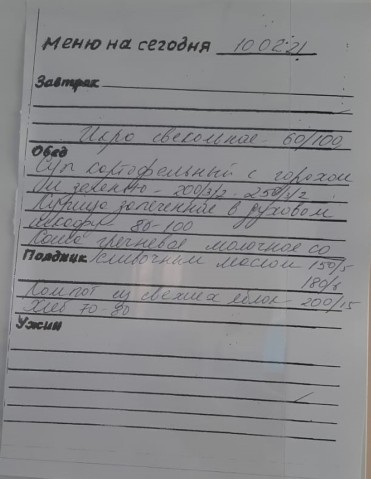 Меню на сегодня 10.02.21
Завтрак
Икра свекольная - 60/100
Обед
Суп картофельный с горохом
и зеленью - 200/3/2 - 250/3/2
Курица запеченная в духовом
шкафу - 80-100
Каша гречневая молочное со
Полдник сливочным маслом 150/5
180/6
Компот из свежих яблок - 200/15
Хлеб 70-80
Ужин